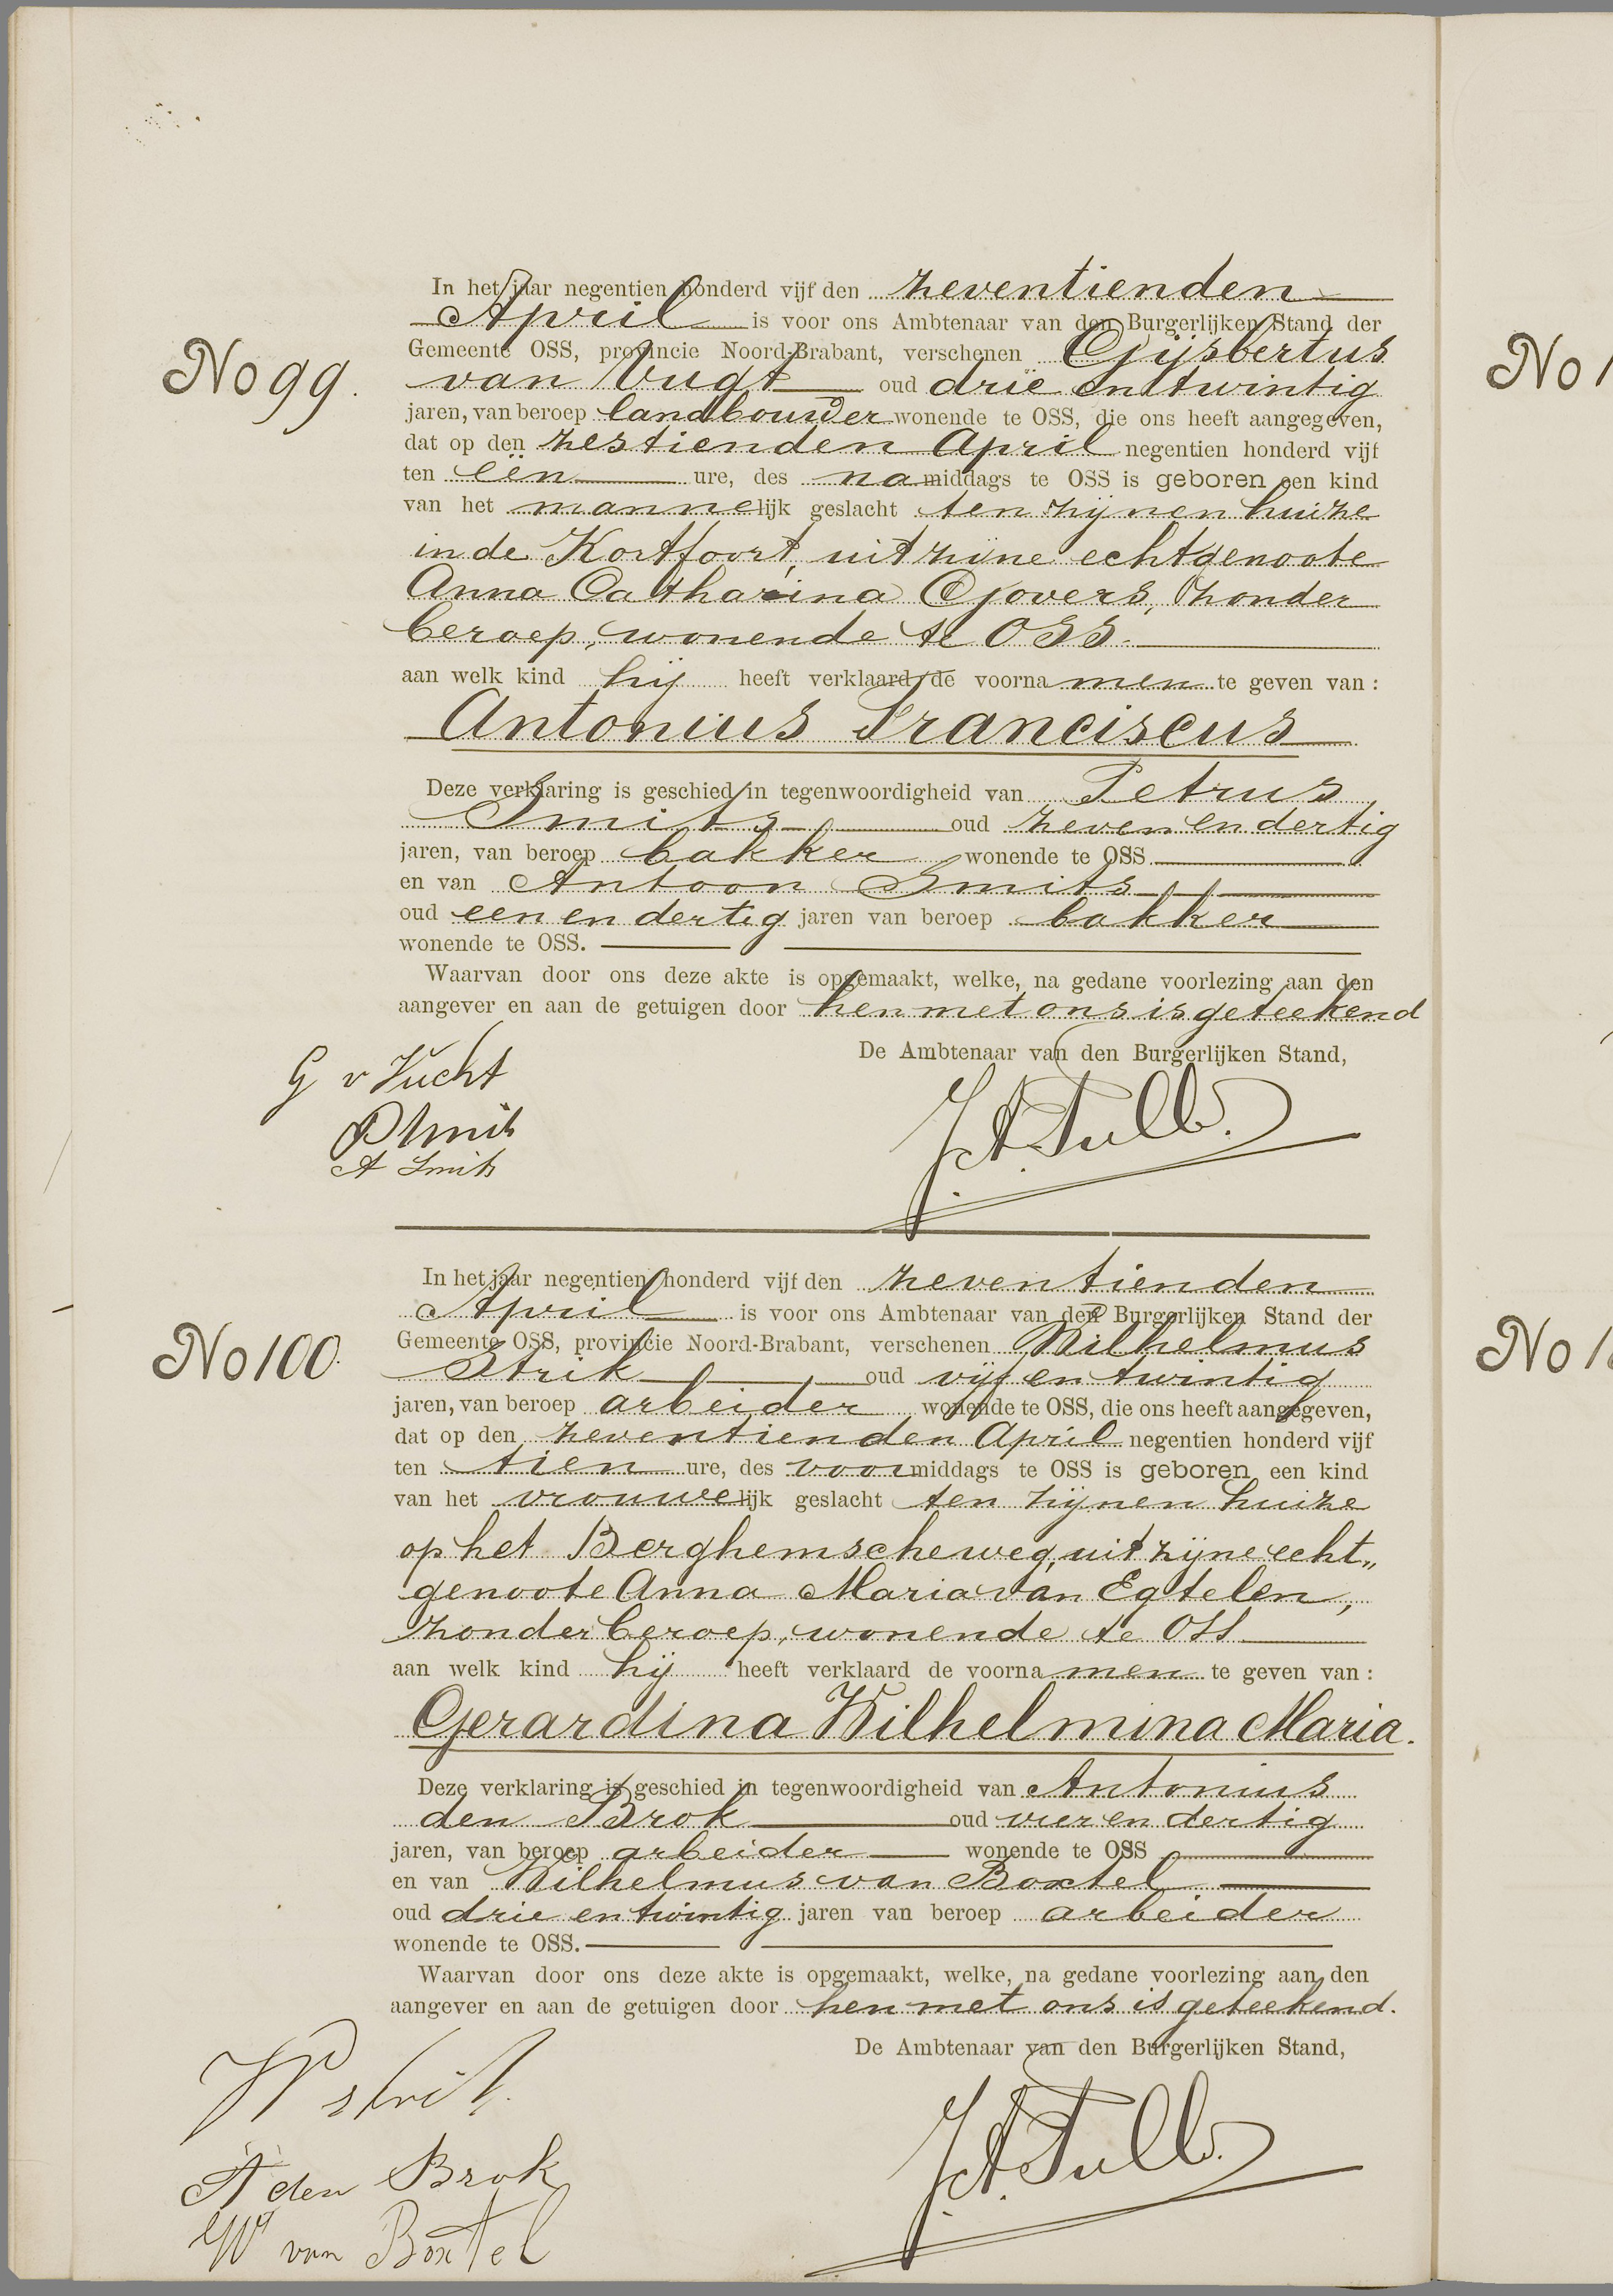 In het jaar negentien honderd vijf den zeventienden
April is voor ons Ambtenaar van den Burgerlijken Stand der
Gemeente OSS, provincie Noord-Brabant, verschenen Gijsbertus
No 99. van Vugt oud drie en twintig
jaren, van beroep landbouwer wonende te OSS, die ons heeft aangegeven,
dat op den zestienden April negentien honderd vijf
ten een ure, des namiddags te OSS is geboren een kind
van het mannelijk geslacht ten zijnen huize
in de Kortfoort, uit zijne echtgenoote
Anna Catharina Govers, zonder
beroep, wonende te OSS.
aan welk kind hij heeft verklaard de voornamen te geven van :
Antonius Franciscus
Deze verklaring is geschied in tegenwoordigheid van Petrus
Smits oud zeven en dertig
jaren, van beroep bakker wonende te OSS
en van Antoon Smits
oud een en dertig jaren van beroep bakker
wonende te OSS.
Waarvan door ons deze akte is opgemaakt, welke, na gedane voorlezing aan den
aangever en aan de getuigen door hen met ons is geteekend
De Ambtenaar van den Burgerlijken Stand,
G v Vucht
P Smits
A Smits
In het jaar negentien honderd vijf den zeventienden
April is voor ons Ambtenaar van den Burgerlijken Stand der
Gemeente OSS, provincie Noord-Brabant, verschenen Wilhelmus
No 100. Strik oud vijf en twintig
jaren, van beroep arbeider wonende te OSS, die ons heeft aangegeven,
dat op den zeventienden April negentien honderd vijf
ten tien ure, des voormiddags te OSS is geboren een kind
van het vrouwelijk geslacht ten zijnen huize
op het Berghemscheweg, uit zijne echt„
genoote Anna Maria van Egtelen,
zonder beroep, wonende te Oss
aan welk kind hij heeft verklaard de voornamen te geven van :
Gerardina Wilhelmina Maria.
Deze verklaring is geschied in tegenwoordigheid van Antonius
den Brok oud vier en dertig
jaren, van beroep arbeider wonende te OSS
en van Wilhelmus van Boxtel
oud drie en twintig jaren van beroep arbeider
wonende te OSS.
Waarvan door ons deze akte is opgemaakt, welke, na gedane voorlezing aan den
aangever en aan de getuigen door hen met ons is geteekend.
De Ambtenaar van den Burgerlijken Stand,
W strik.
A den Brok
W van Boxtel